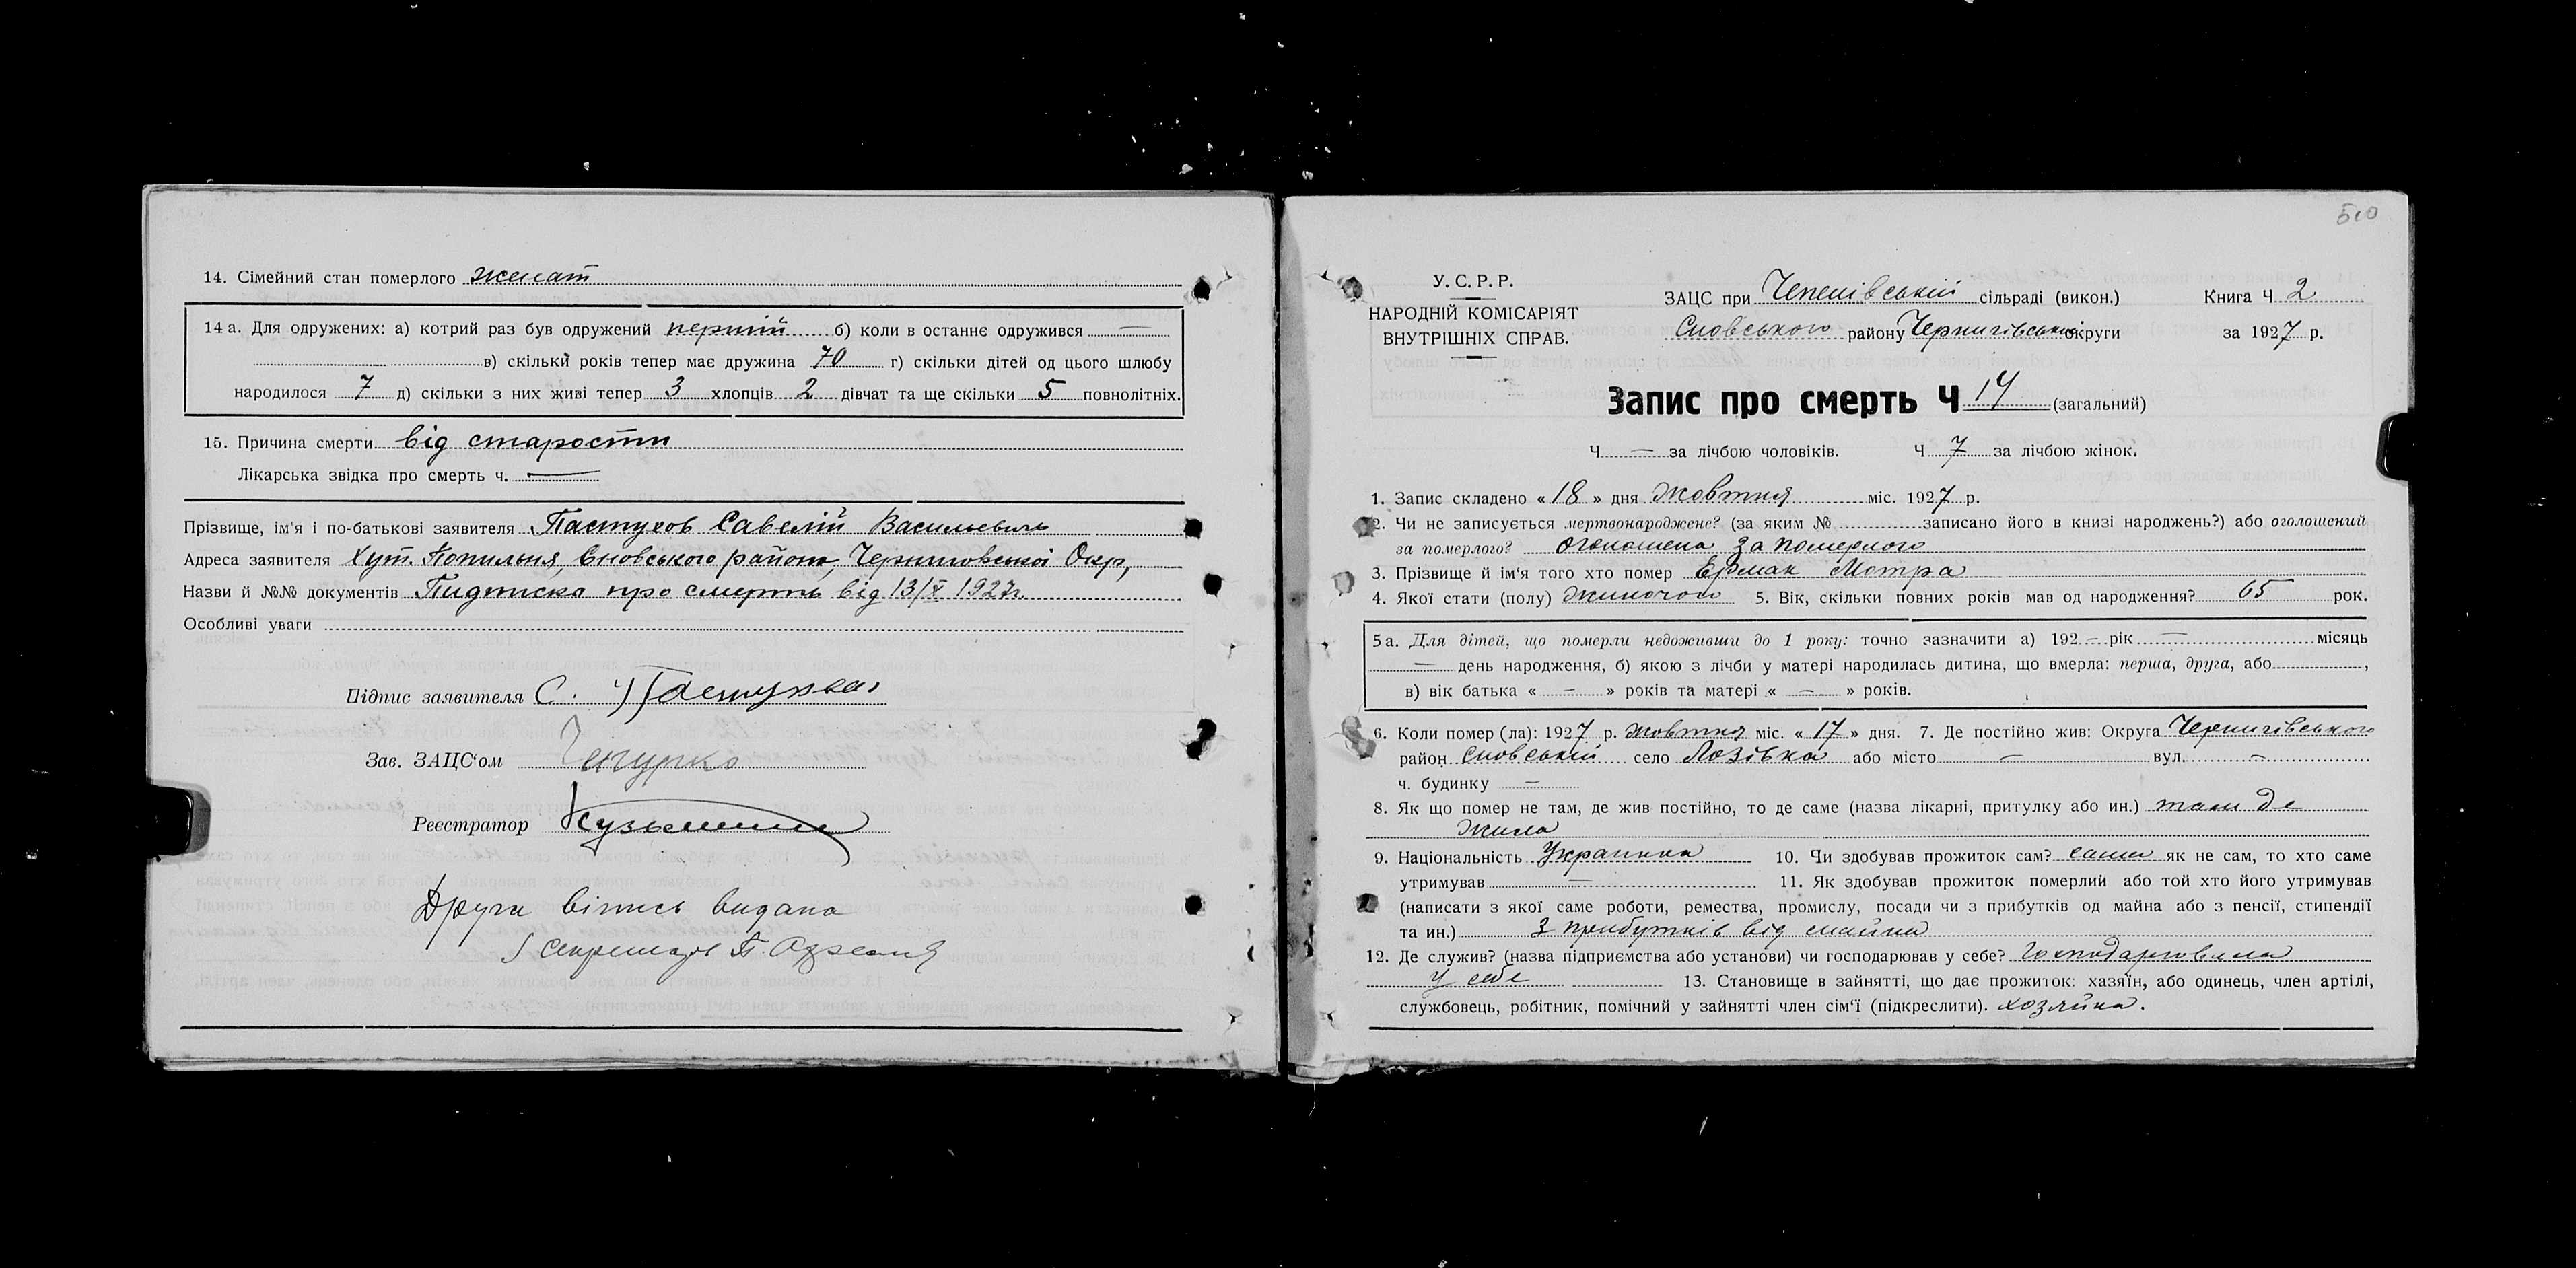 14. Сімейний стан померлого женат
14 а. Для одружених: а) котрий раз був одружений перший б) коли в останнє одружився —
в) скільки років тепер має дружина 70 г) скільки дітей од цього шлюбу
народилося 7 д) скільки з них живі тепер 3 хлопців 2 дівчат та ще скільки 5 повнолітніх.
15. Причина смерти від старости
Лікарська звідка про смерть ч. —
Прізвище, ім'я і по-батькові заявителя Пастухов Савелій Васильевичь
Адреса заявителя Хут. Попильня, Сновського района, Черниговської Окр,
Назви й №№ документів Пидписка про смерть від 13/X 1927 г.
Особливі уваги
Підпис заявителя С. Пастухов
Зав. ЗАЦС'ом
Реєстратор Кузьмин
Друга випись видана
секретарь П.
510
У. С. Р. Р.
НАРОДНІЙ КОМІСАРІЯТ
ВНУТРІШНІХ СПРАВ.
ЗАЦС при сільраді (викон.) Книга Ч 2
Сновського району Чернигівської округи за 1927 р.
Запис про смерть Ч 14 (загальний)
Ч — за лічбою чоловіків. Ч 7 за лічбою жінок.
1. Запис складено « 18 » дня жовтня міс. 1927 р.
2. Чи не записується мертвонароджене? (за яким № записано його в книзі народжень?) або оголошений
за померлого? оголошена за померлого
3. Прізвище й ім'я того хто помер Ермак Мотра
4. Якої стати (полу) жиночого 5. Вік, скільки повних років мав од народження? 65 рок.
5 а. Для дітей, що померли недоживши до 1 року: точно зазначити а) 192 — рік — місяць
— день народження, б) якою з лічби у матері народилась дитина, що вмерла: перша, друга, або ,
в) вік батька « — » років та матері « — » років.
6. Коли помер (ла): 1927 р. жовтня міс. « 17 » дня. 7. Де постійно жив: Округа Чернигівського
район Сновський село Лозівка або місто — вул. —
ч. будинку —
8. Як що помер не там, де жив постійно, то де саме (назва лікарні, притулку або ин.) там де
жила
9. Національність Украинка 10. Чи здобував прожиток сам? сама як не сам, то хто саме
утримував — 11. Як здобував прожиток померлий або той хто його утримував
(написати з якої саме роботи, ремества, промислу, посади чи з прибутків од майна або з пенсії, стипендії
та ин.) З прибутків від майна
12. Де служив? (назва підприємства або установи) чи господарював у себе? Господарювала
у себе 13. Становище в зайнятті, що дає прожиток: хазяїн, або одинець, член артілі,
службовець, робітник, помічний у зайнятті член сім'ї (підкреслити). хозяйка.